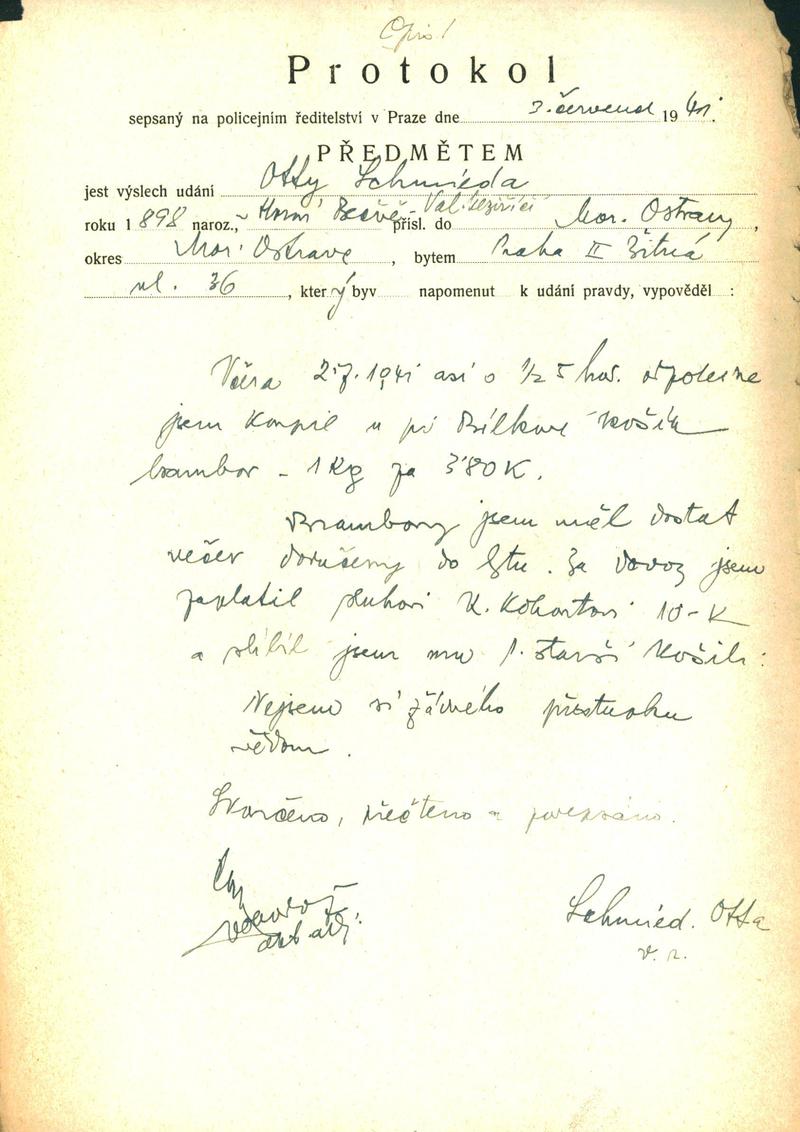 Opis!
Protokol
sepsaný na policejním ředitelství v Praze dne 3. července 1941.
PŘEDMĚTEM
jest výslech udání Otty Schmieda
roku 1898 naroz., Horní Bečvě Val. Meziříčí přísl. do Mor. Ostravy,
okres Mor. Ostrava, bytem Praha II Žitná
ul. 36, který byv napomenut k udání pravdy, vypověděl :
Včera 2.7.1941 asi o 1/2 5 hod. odpoledne
jsem koupil u pí Bílkové košík
brambor - 1 Kg za 3'80 K.
Brambory jsem měl dostat
večer doručeny do bytu. Za dovoz jsem
zaplatil sluhovi K. Kohoutovi 10-K
a slíbil jsem mu 1 starší košili.
Nejsem si žádného přestupku
vědom.
Skončeno, přečteno a podepsáno.
Schmied. Otta
v. r.